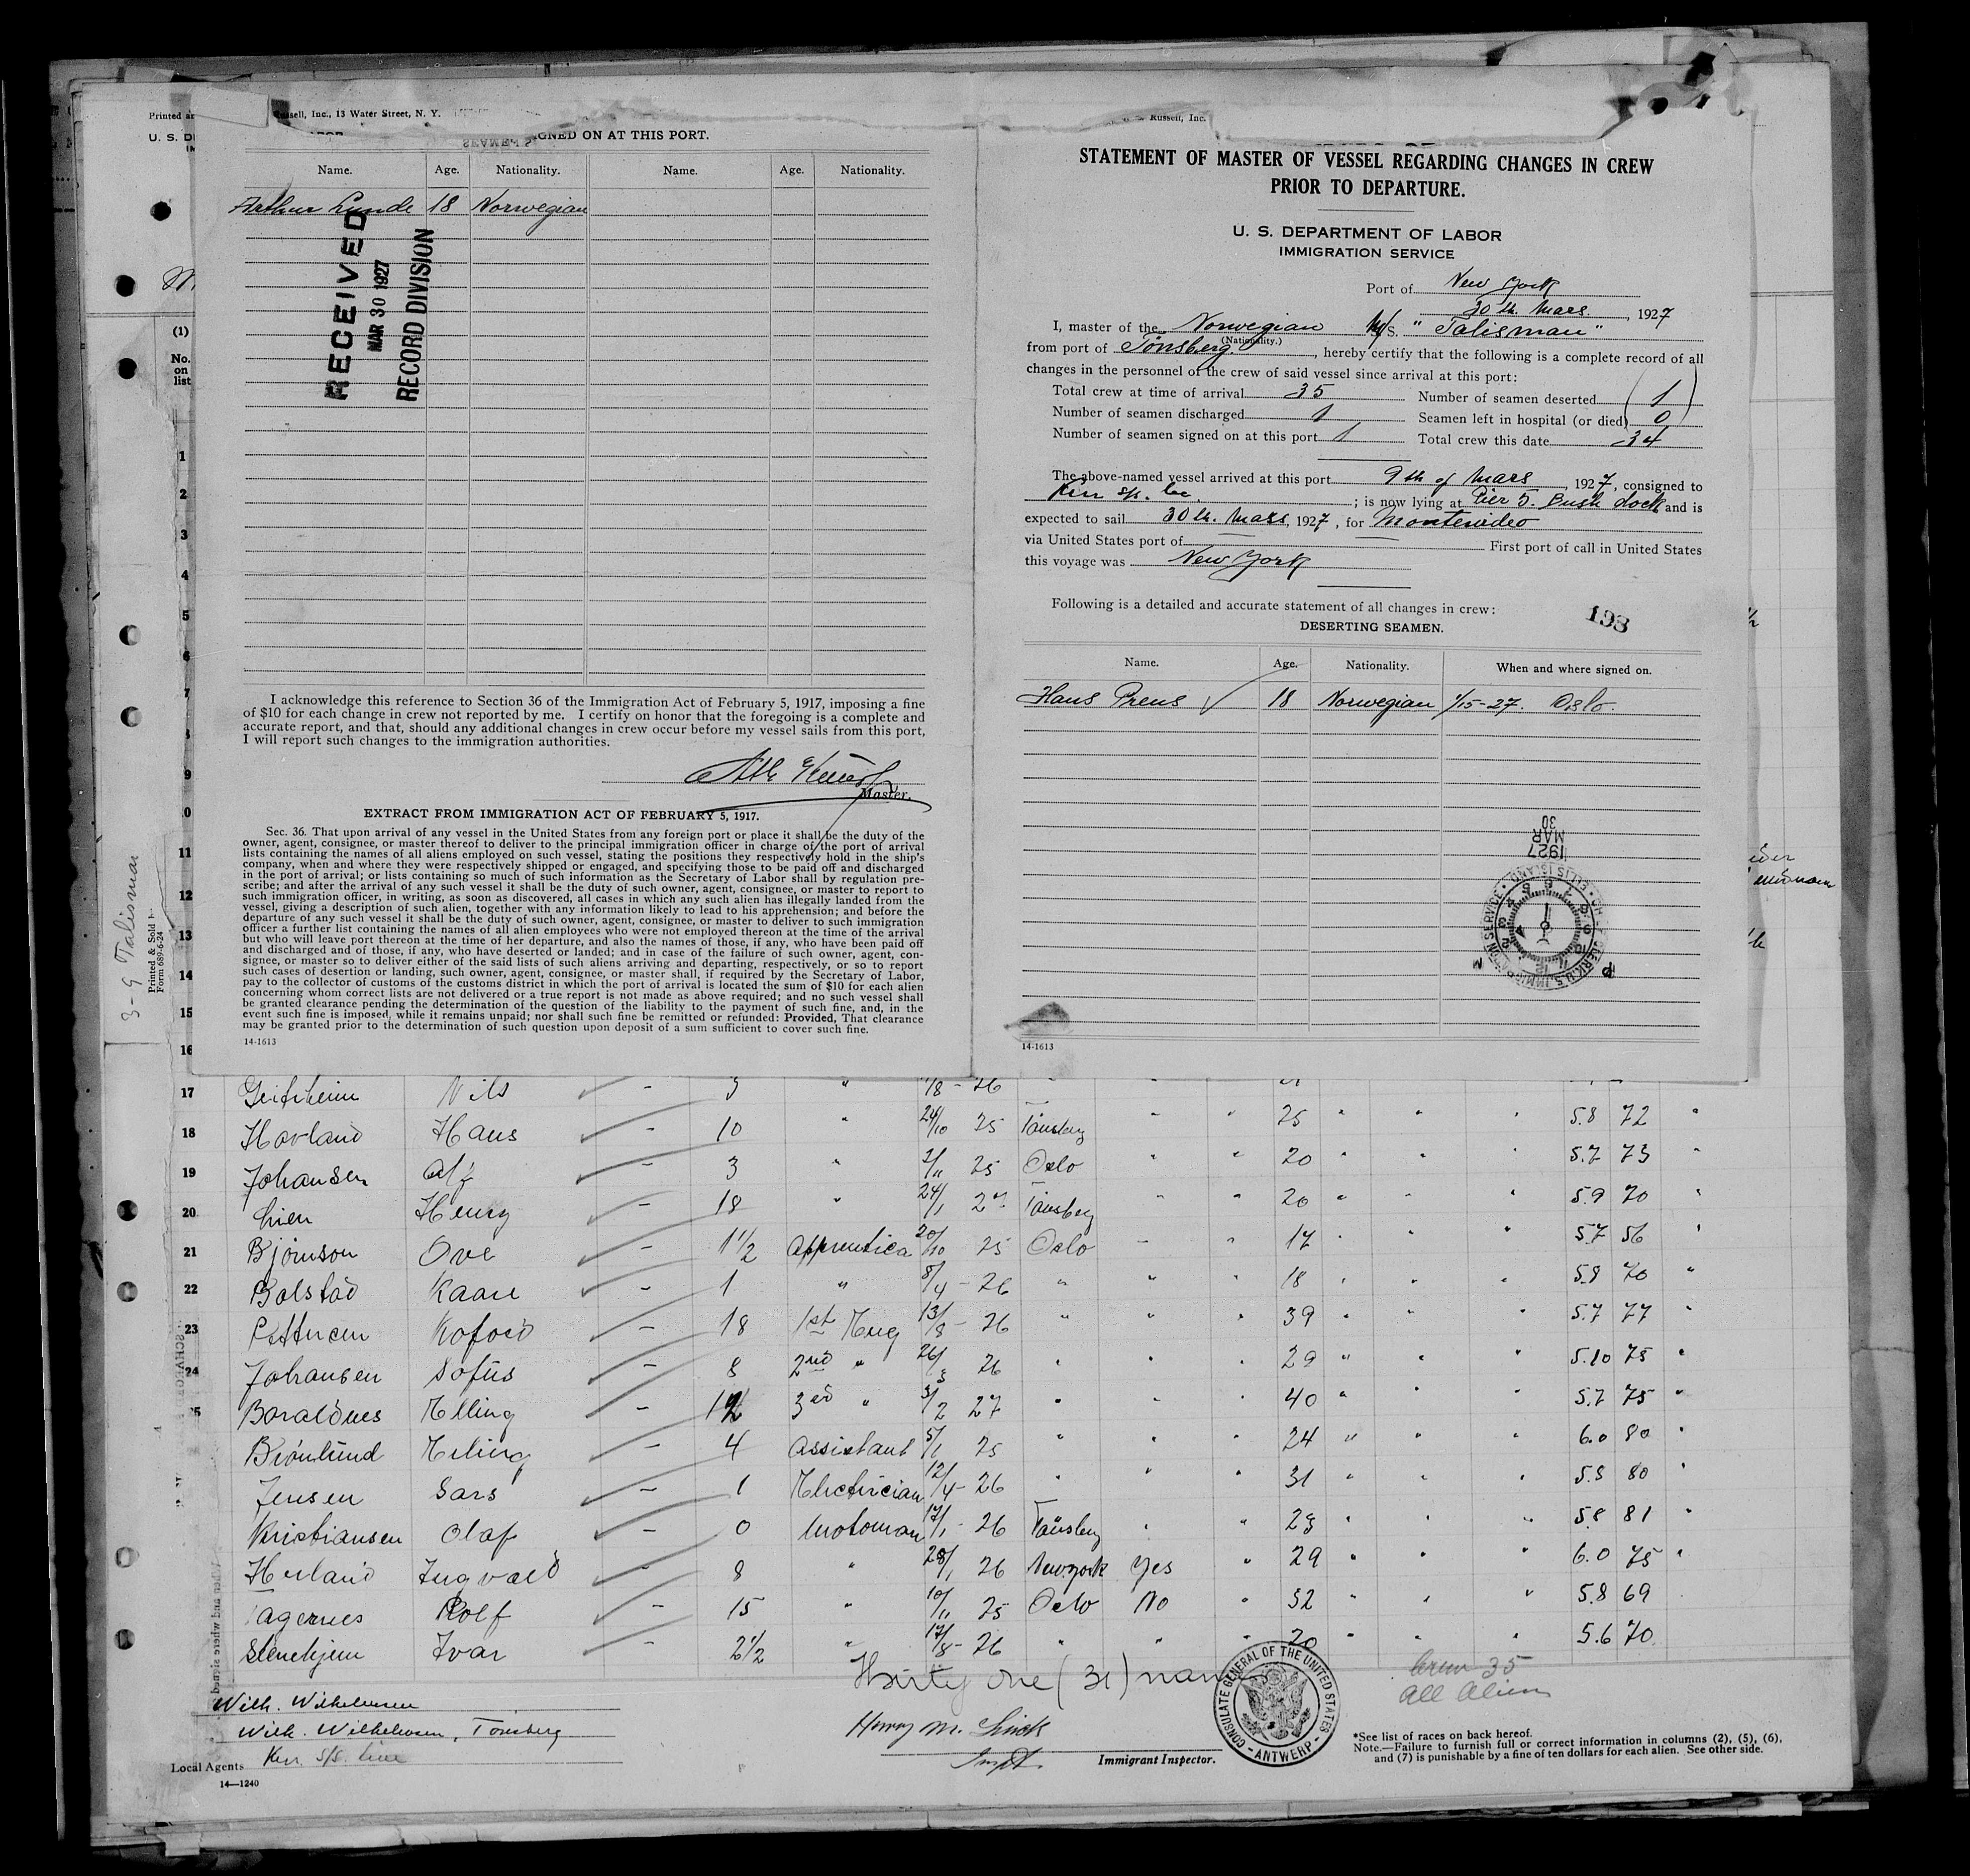 Russell, Inc., 13 Water Street, N. Y.
SIGNED ON AT THIS PORT.
Name. Age. Nationality. Name. Age. Nationality.
Arthur Lunde 18 Norwegian
RECEIVED
MAR 30 1927
RECORD DIVISION
I acknowledge this reference to Section 36 of the Immigration Act of February 5, 1917, imposing a fine
of $10 for each change in crew not reported by me. I certify on honor that the foregoing is a complete and
accurate report, and that, should any additional changes in crew occur before my vessel sails from this port,
I will report such changes to the immigration authorities.
Master.
EXTRACT FROM IMMIGRATION ACT OF FEBRUARY 5, 1917.
Sec. 36. That upon arrival of any vessel in the United States from any foreign port or place it shall be the duty of the
owner, agent, consignee, or master thereof to deliver to the principal immigration officer in charge of the port of arrival
lists containing the names of all aliens employed on such vessel, stating the positions they respectively hold in the ship's
company, when and where they were respectively shipped or engaged, and specifying those to be paid off and discharged
in the port of arrival; or lists containing so much of such information as the Secretary of Labor shall by regulation pre-
scribe; and after the arrival of any such vessel it shall be the duty of such owner, agent, consignee, or master to report to
such immigration officer, in writing, as soon as discovered, all cases in which any such alien has illegally landed from the
vessel, giving a description of such alien, together with any information likely to lead to his apprehension; and before the
departure of any such vessel it shall be the duty of such owner, agent, consignee, or master to deliver to such immigration
officer a further list containing the names of all alien employees who were not employed thereon at the time of the arrival
but who will leave port thereon at the time of her departure, and also the names of those, if any, who have been paid off
and discharged and of those, if any, who have deserted or landed; and in case of the failure of such owner, agent, con-
signee, or master so to deliver either of the said lists of such aliens arriving and departing, respectively, or so to report
such cases of desertion or landing, such owner, agent, consignee, or master shall, if required by the Secretary of Labor,
pay to the collector of customs of the customs district in which the port of arrival is located the sum of $10 for each alien
concerning whom correct lists are not delivered or a true report is not made as above required; and no such vessel shall
be granted clearance pending the determination of the question of the liability to the payment of such fine, and, in the
event such fine is imposed, while it remains unpaid; nor shall such fine be remitted or refunded: Provided, That clearance
may be granted prior to the determination of such question upon deposit of a sum sufficient to cover such fine.
14-1613
Russell, Inc.
STATEMENT OF MASTER OF VESSEL REGARDING CHANGES IN CREW
PRIOR TO DEPARTURE.
U. S. DEPARTMENT OF LABOR
IMMIGRATION SERVICE
Port of New York
30th Mars, 1927
I, master of the Norwegian M/S. "Talisman"
(Nationality.)
from port of Tönsberg, hereby certify that the following is a complete record of all
changes in the personnel of the crew of said vessel since arrival at this port:
Total crew at time of arrival 35 Number of seamen deserted 1
Number of seamen discharged 1 Seamen left in hospital (or died) 0
Number of seamen signed on at this port 1 Total crew this date 34
The above-named vessel arrived at this port 9th of Mars, 1927, consigned to
Kerr s/s. Inc. ; is now lying at Pier 5. Bush dock and is
expected to sail 30th. Mars, 1927, for Montevideo
via United States port of — First port of call in United States
this voyage was New York
Following is a detailed and accurate statement of all changes in crew:
193
DESERTING SEAMEN.
Name. Age. Nationality. When and where signed on.
Hans Preus 18 Norwegian 1/15-27. Oslo.
1927 MAR 30
14-1613
3-9 Talisman
Printed & Sold
Form 689-6-24
17 Nils 3 " /8 - 26
18 Havland Hans — 10 " 24/10 25 Tönsberg " " 25 " " " 5.8 72 "
19 Johansen Alf — 3 " 2/11 25 Oslo " " 20 " " " 5.7 73 "
20 Lien Henry — 18 " 24/1 27 Tönsberg " " 20 " " " 5.9 70 "
21 Björnson Ove — 1 1/2 Apprentice 20/10 25 Oslo " " 17 " " " 5.7 56 "
22 Bolstad Kaare — 1 " 8/4 - 26 " " " 18 " " " 5.8 70 "
23 Pettersen Kofoed — 18 1st Eng 13/8 - 26 " " " 39 " " " 5.7 77 "
24 Johansen Sofus — 8 2nd " 26/3 26 " " " 29 " " " 5.10 75 "
25 Elling — 12 3rd " 3/2 27 " " " 40 " " " 5.7 75 "
Brönlund Erling — 4 Assistant 5/1 25 " " " 24 " " " 6.0 80 "
Jensen Lars — 1 Electrician 12/4 - 26 " " " 31 " " " 5.5 80 "
Kristiansen Olaf — 0 Motoman 17/1 - 26 Tönsberg " " 23 " " " 5.8 81 "
Herland Ingvald — 8 " 28/1 26 New York Yes " 29 " " " 6.0 75 "
Rolf — 15 " 10/11 25 Oslo No " 52 " " " 5.8 69
Stenehjem Ivar — 2 1/2 " 17/8 - 26 " " " 20 " " " 5.6 70
Thirty one (31) names
Crew 35
All Aliens
Wilh. Wilhelmsen
Wilh. Wilhelmsen, Tönsberg
Local Agents Kerr s/s. line
14—1240
Immigrant Inspector.
CONSULATE GENERAL OF THE UNITED STATES - ANTWERP -
*See list of races on back hereof.
Note.—Failure to furnish full or correct information in columns (2), (5), (6),
and (7) is punishable by a fine of ten dollars for each alien. See other side.